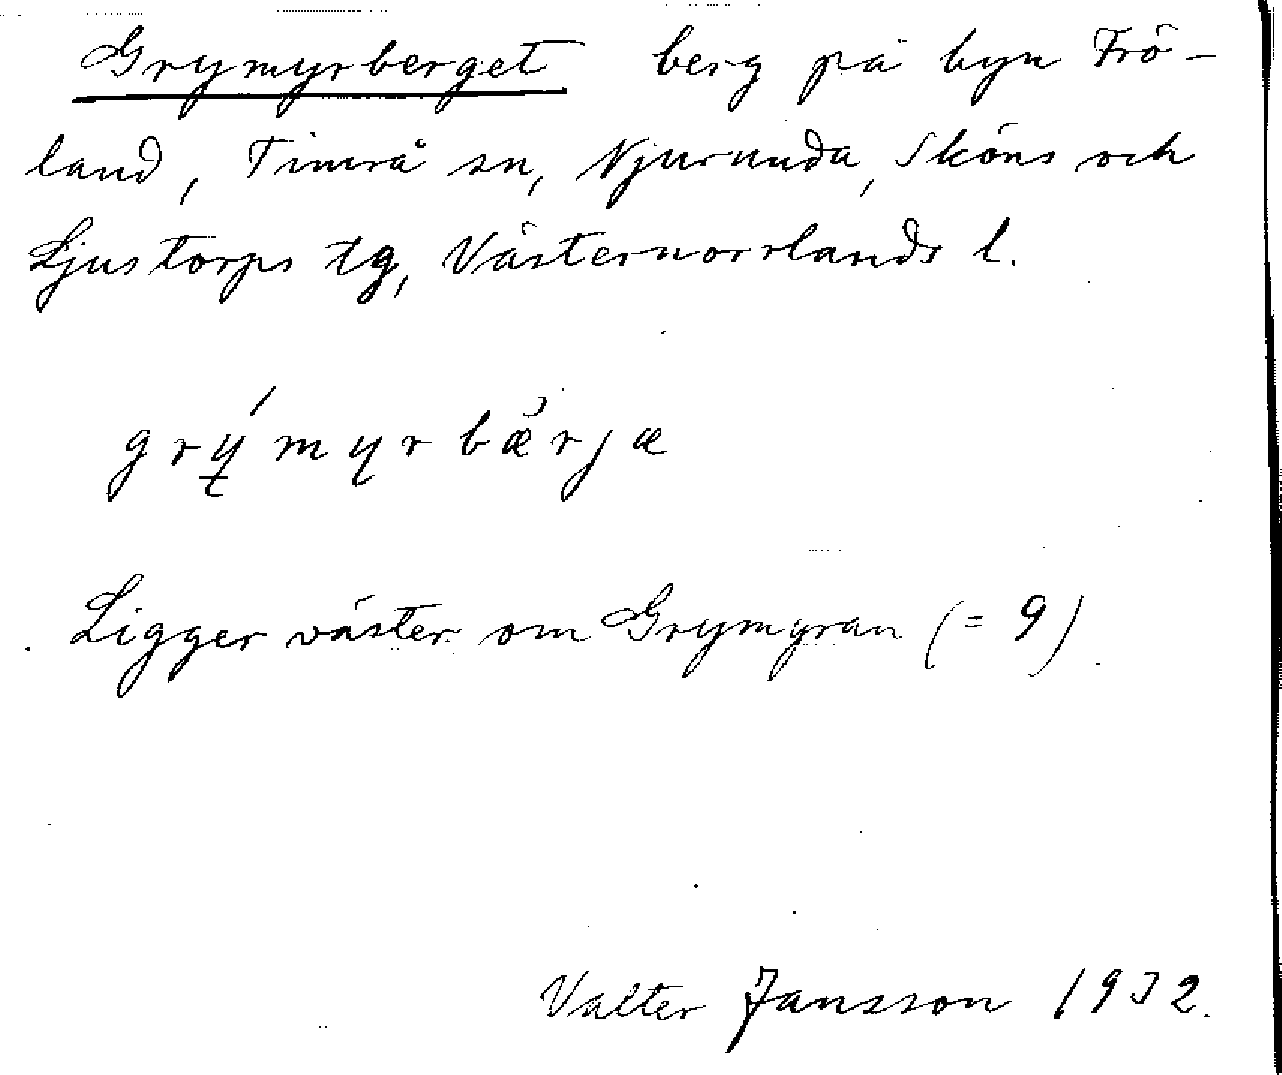 Grymyrberget berg på byn Frö-
land, Timrå sn, Njurunda, Sköns och
Ljustorps tg, Västernorrlands l.
grýmyrbærjæ
Ligger väster om Grymyran (= 9)
Valter Jansson 1932.